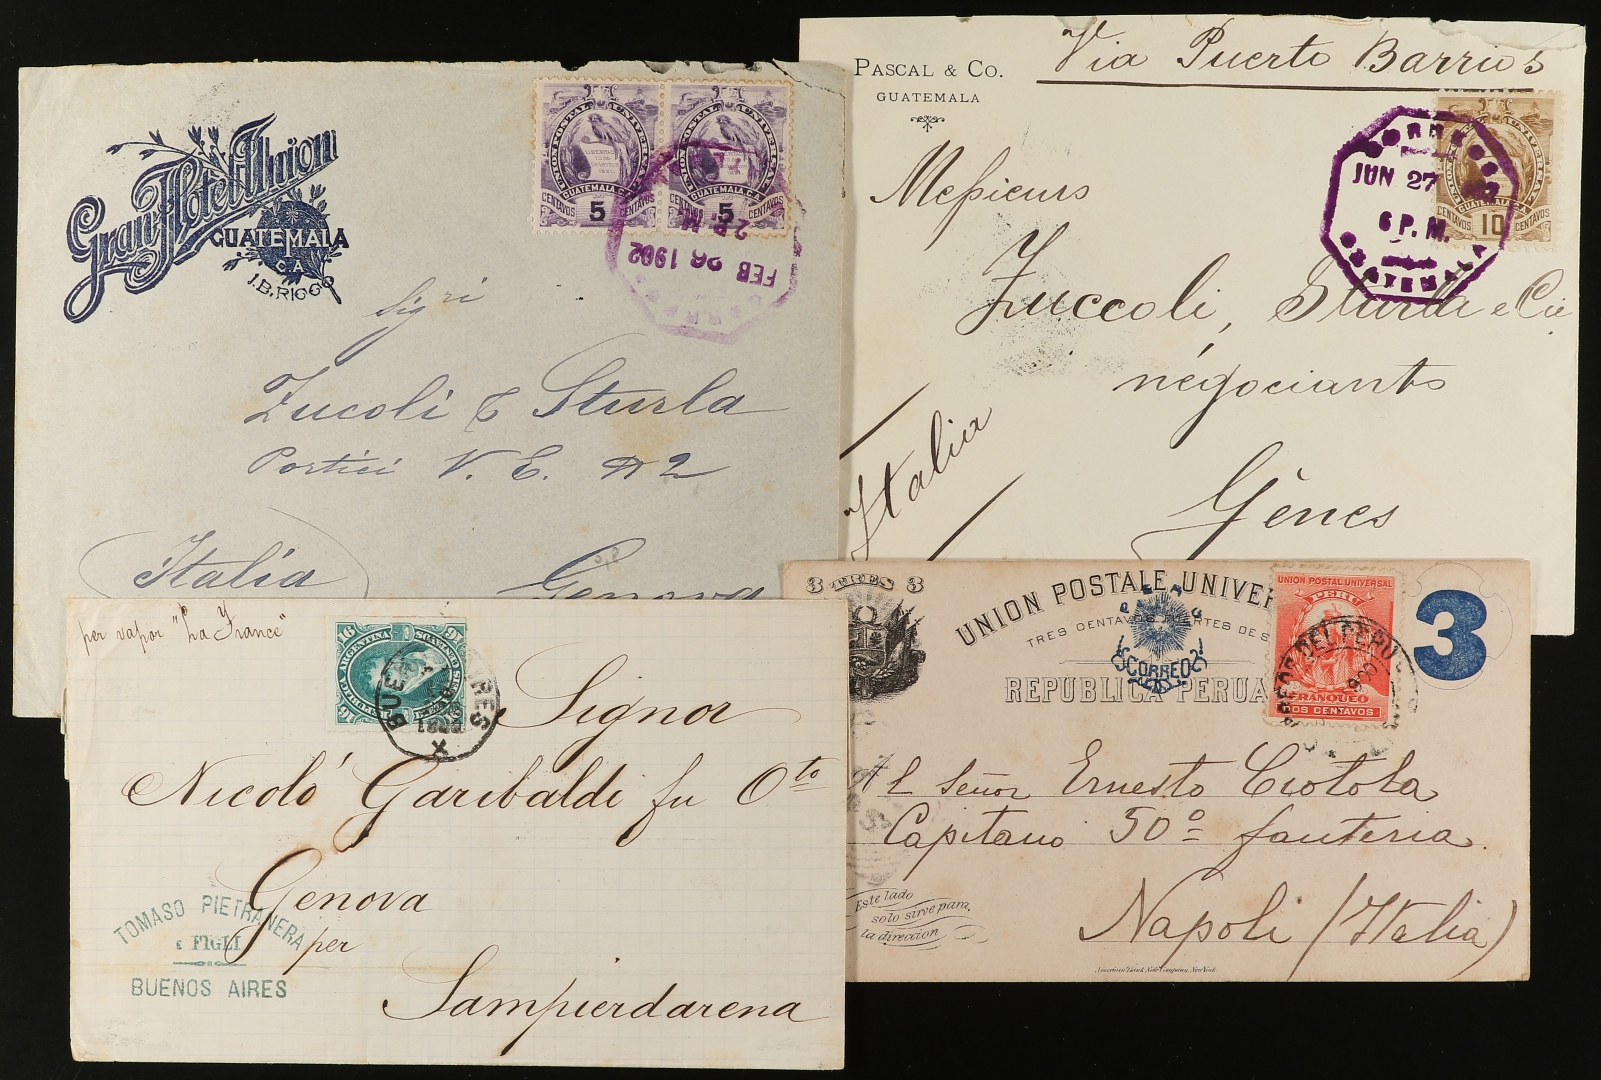 Gran Hotel Union
GUATEMALA
C.A.
J.B. RIGGO
UNION POSTAL UNIVERSAL
GUATEMALA. C.A.
CENTAVOS 5 CENTAVOS
UNION POSTAL UNIVERSAL
GUATEMALA. C.A.
CENTAVOS 5 CENTAVOS
2 P.M.
FEB 26 1902
Sigri
Zucoli & Sturla
Portici V. E. No 2
Italia
Genova
PASCAL & CO.
GUATEMALA
Via Puerto Barrios
CORREOS
JUN 27
6 P.M.
GUATEMALA
GUATEMALA. C.A.
CENTAVOS 10 CENTAVOS
Messieurs
Zuccoli, Sturla e Cie
négociants
Gênes
Italia
per vapor "La France"
16 16
REPUBLICA ARGENTINA
16 16
BUENOS AIRES
X
Signor
Nicoló Garibaldi fu Gto
Genova
per
Sampierdarena
TOMASO PIETRANERA
E FIGLI
BUENOS AIRES
3 TRES 3
UNION POSTALE UNIVER
TRES CENTAVOS FUERTES DE S
REPUBLICA PERUA
CORREOS
UNION POSTAL UNIVERSAL
PERU
FRANQUEO
DOS CENTAVOS
3
Al Señor Ernesto Ciotola
Capitano 50º fanteria.
Napoli (Italia)
Este lado
solo sirve para
la direccion
American Bank Note Company, New York